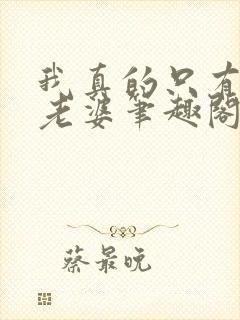 我真的只有
老婆笔趣阁
蔡最晚